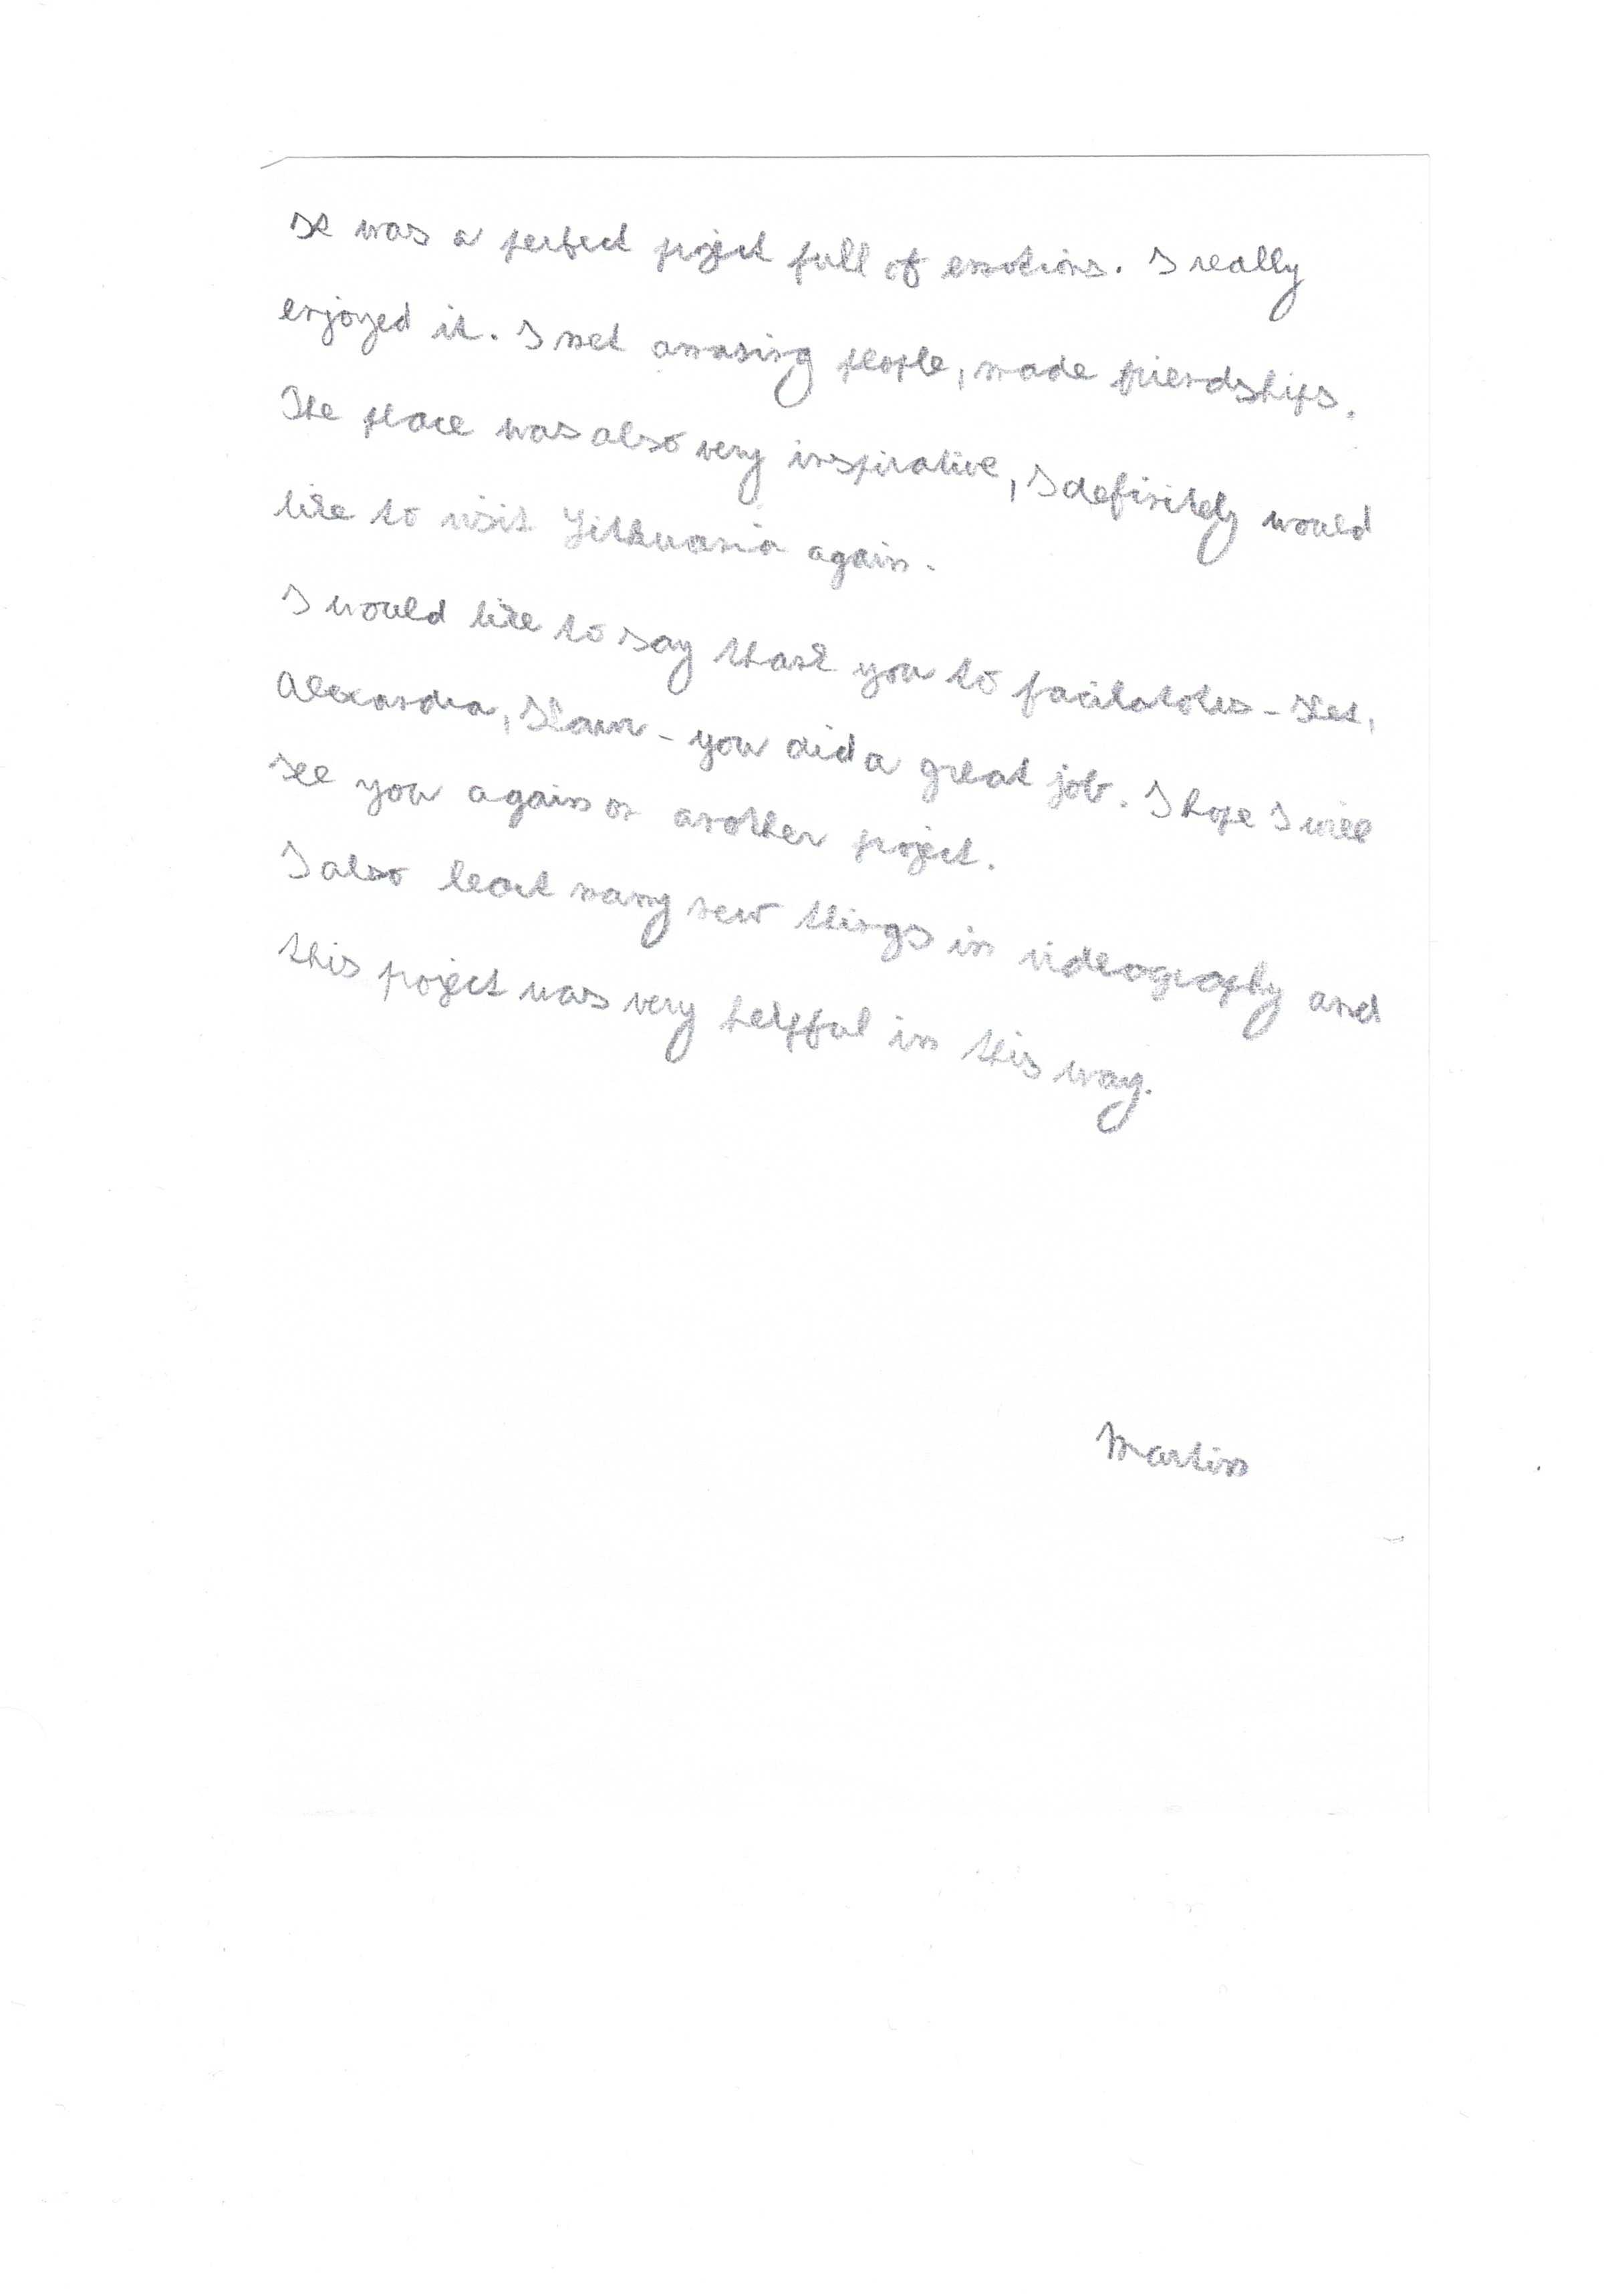 It was a perfect project full of emotions. I really
enjoyed it. I met amazing people, made friendships.
The place was also very inspirative, I definitely would
like to visit Lithuania again.
I would like to say thank you to facilitators -
Alexandra, - you did a great job. I hope I will
see you again on another project.
I also learnt many new things in videography and
this project was very helpful in this way.
Martin